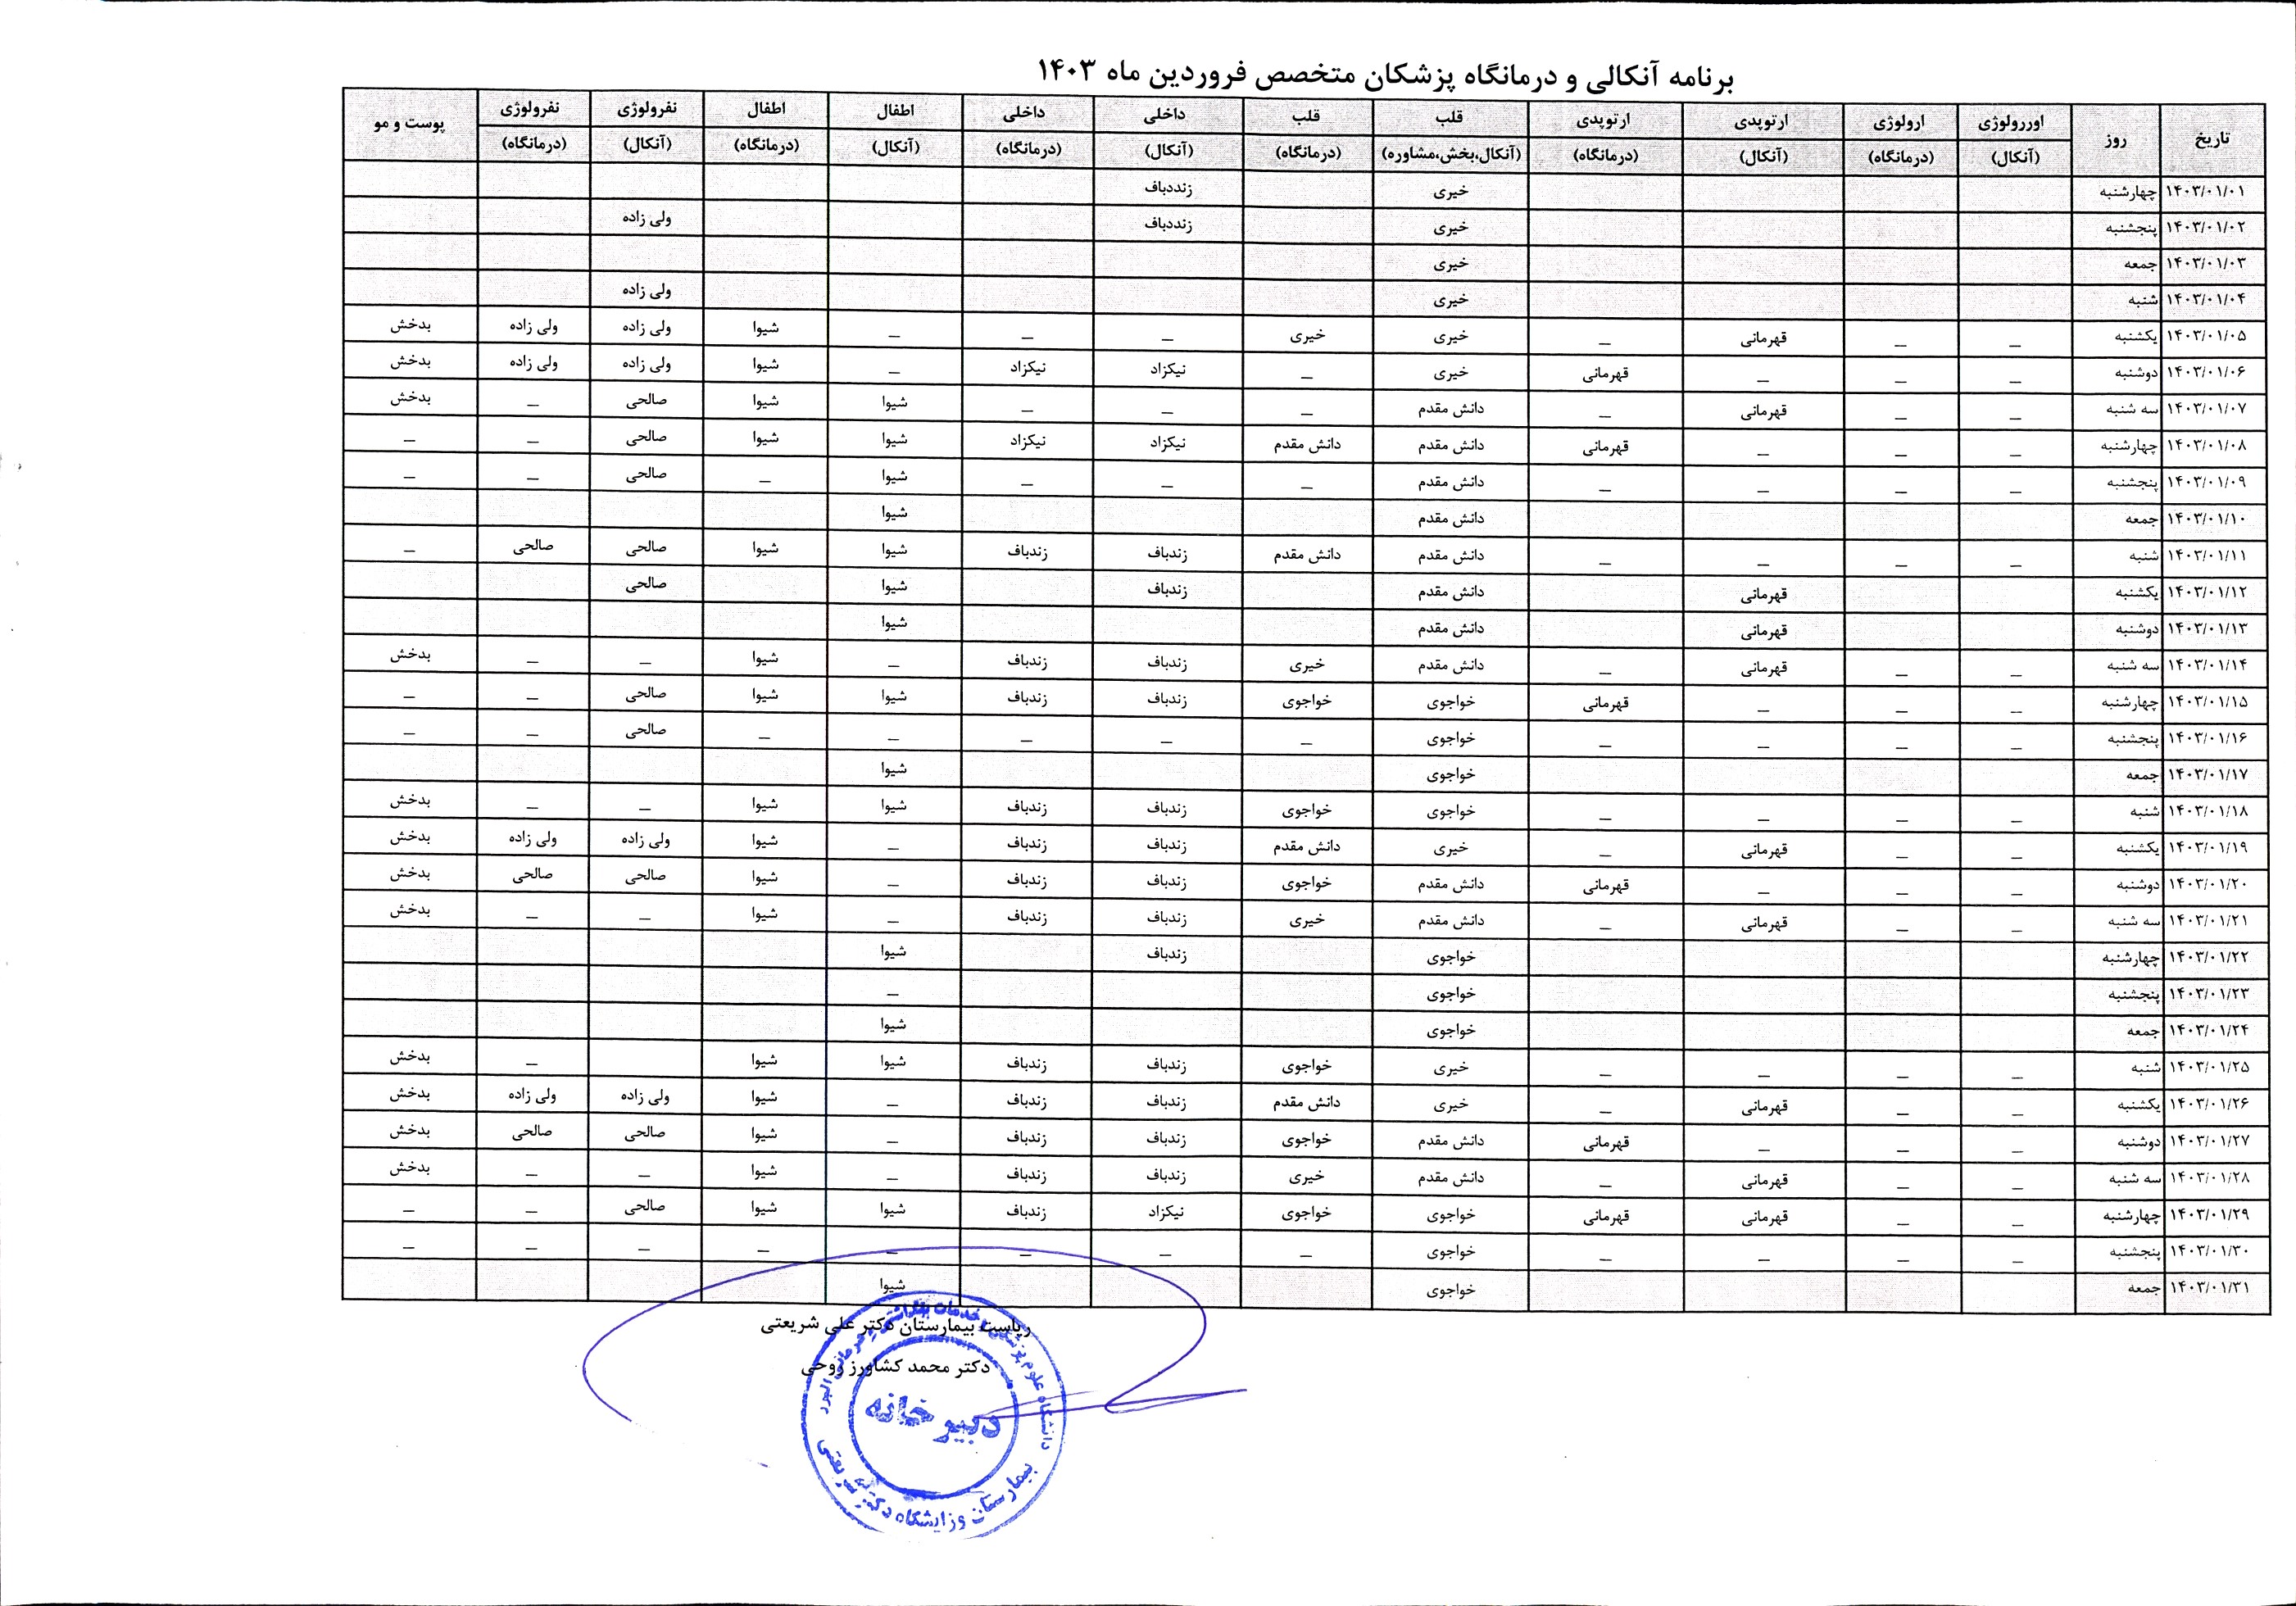 برنامه آنکالی و درمانگاه پزشکان متخصص فروردین ماه ۱۴۰۳
تاریخ روز اوررولوژی (آنکال) ارولوژی (درمانگاه) ارتوپدی (آنکال) ارتوپدی (درمانگاه) قلب (آنکال،بخش،مشاوره) قلب (درمانگاه) داخلی (آنکال) داخلی (درمانگاه) اطفال (آنکال) اطفال (درمانگاه) نفرولوژی (آنکال) نفرولوژی (درمانگاه) پوست و مو
۱۴۰۳/۰۱/۰۱ چهارشنبه خیری زنددباف
۱۴۰۳/۰۱/۰۲ پنجشنبه خیری زنددباف ولی زاده
۱۴۰۳/۰۱/۰۳ جمعه خیری
۱۴۰۳/۰۱/۰۴ شنبه خیری ولی زاده
۱۴۰۳/۰۱/۰۵ یکشنبه _ _ قهرمانی _ خیری خیری _ _ _ شیوا ولی زاده ولی زاده بدخش
۱۴۰۳/۰۱/۰۶ دوشنبه _ _ _ قهرمانی خیری _ نیکزاد نیکزاد _ شیوا ولی زاده ولی زاده بدخش
۱۴۰۳/۰۱/۰۷ سه شنبه _ _ قهرمانی _ دانش مقدم _ _ _ شیوا شیوا صالحی _ بدخش
۱۴۰۳/۰۱/۰۸ چهارشنبه _ _ _ قهرمانی دانش مقدم دانش مقدم نیکزاد نیکزاد شیوا شیوا صالحی _ _
۱۴۰۳/۰۱/۰۹ پنجشنبه _ _ _ _ دانش مقدم _ _ _ شیوا _ صالحی _ _
۱۴۰۳/۰۱/۱۰ جمعه دانش مقدم شیوا
۱۴۰۳/۰۱/۱۱ شنبه _ _ _ _ دانش مقدم دانش مقدم زندباف زندباف شیوا شیوا صالحی صالحی _
۱۴۰۳/۰۱/۱۲ یکشنبه قهرمانی دانش مقدم زندباف شیوا صالحی
۱۴۰۳/۰۱/۱۳ دوشنبه قهرمانی دانش مقدم شیوا
۱۴۰۳/۰۱/۱۴ سه شنبه _ _ قهرمانی _ دانش مقدم خیری زندباف زندباف _ شیوا _ _ بدخش
۱۴۰۳/۰۱/۱۵ چهارشنبه _ _ _ قهرمانی خواجوی خواجوی زندباف زندباف شیوا شیوا صالحی _ _
۱۴۰۳/۰۱/۱۶ پنجشنبه _ _ _ _ خواجوی _ _ _ _ _ صالحی _ _
۱۴۰۳/۰۱/۱۷ جمعه خواجوی شیوا
۱۴۰۳/۰۱/۱۸ شنبه _ _ _ _ خواجوی خواجوی زندباف زندباف شیوا شیوا _ _ بدخش
۱۴۰۳/۰۱/۱۹ یکشنبه _ _ قهرمانی _ خیری دانش مقدم زندباف زندباف _ شیوا ولی زاده ولی زاده بدخش
۱۴۰۳/۰۱/۲۰ دوشنبه _ _ _ قهرمانی دانش مقدم خواجوی زندباف زندباف _ شیوا صالحی صالحی بدخش
۱۴۰۳/۰۱/۲۱ سه شنبه _ _ قهرمانی _ دانش مقدم خیری زندباف زندباف _ شیوا _ _ بدخش
۱۴۰۳/۰۱/۲۲ چهارشنبه خواجوی زندباف شیوا
۱۴۰۳/۰۱/۲۳ پنجشنبه خواجوی _
۱۴۰۳/۰۱/۲۴ جمعه خواجوی شیوا
۱۴۰۳/۰۱/۲۵ شنبه _ _ _ _ خیری خواجوی زندباف زندباف شیوا شیوا _ بدخش
۱۴۰۳/۰۱/۲۶ یکشنبه _ _ قهرمانی _ خیری دانش مقدم زندباف زندباف _ شیوا ولی زاده ولی زاده بدخش
۱۴۰۳/۰۱/۲۷ دوشنبه _ _ _ قهرمانی دانش مقدم خواجوی زندباف زندباف _ شیوا صالحی صالحی بدخش
۱۴۰۳/۰۱/۲۸ سه شنبه _ _ قهرمانی _ دانش مقدم خیری زندباف زندباف _ شیوا _ _ بدخش
۱۴۰۳/۰۱/۲۹ چهارشنبه _ _ قهرمانی قهرمانی خواجوی خواجوی نیکزاد زندباف شیوا شیوا صالحی _ _
۱۴۰۳/۰۱/۳۰ پنجشنبه _ _ _ _ خواجوی _ _ _ _ _ _ _ _
۱۴۰۳/۰۱/۳۱ جمعه خواجوی شیوا
ریاست بیمارستان دکتر علی شریعتی
دکتر محمد کشاورز روحی
دانشگاه علوم پزشکی و خدمات بهداشتی درمانی البرز
دبیرخانه
بیمارستان و زایشگاه دکتر شریعتی